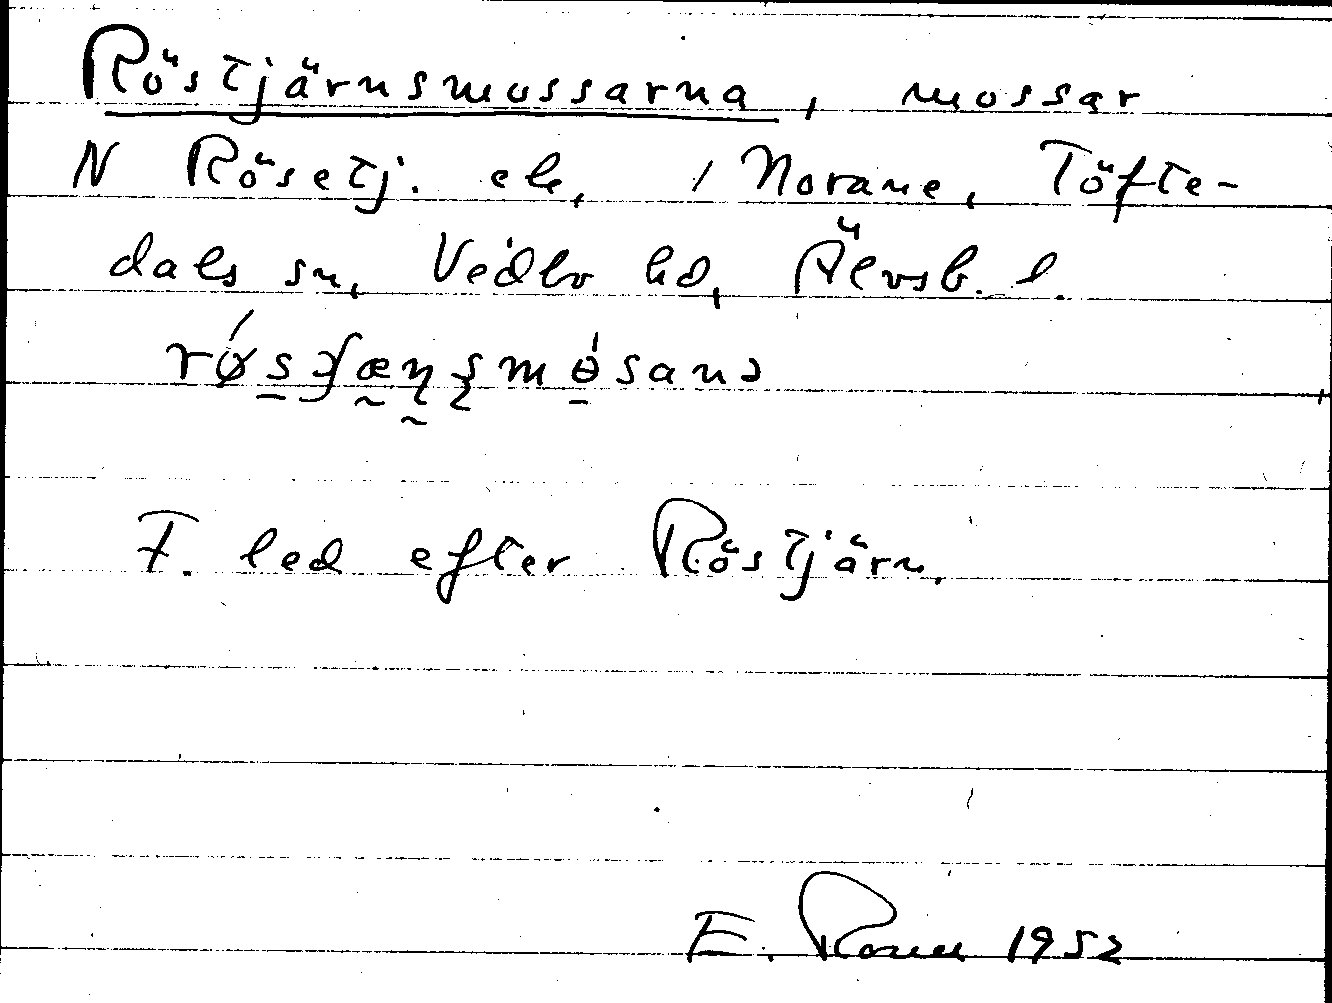 Röstjärnsmossarna, mossar
N Rösetj. ek, i Norane, Töfte-
dals sn, Vedbo hd, Älvsb. l.
F. led efter Röstjärn.
E. 1952